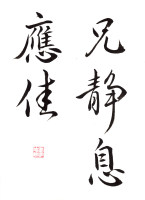 兄靜息
應佳